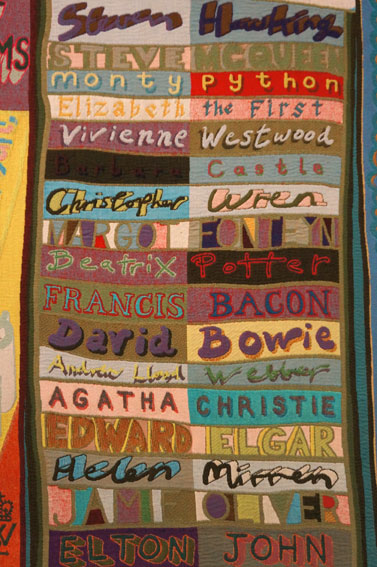 Steven Hawking
STEVE MCQUEEN
monty python
Elizabeth the First
Vivienne Westwood
Burbury Castle
Christopher Wren
MARGOT FONTEYN
Beatrix Potter
FRANCIS BACON
David Bowie
Andrew Lloyd Webber
AGATHA CHRISTIE
EDWARD ELGAR
Helen Mirren
JAMIE OLIVER
ELTON JOHN